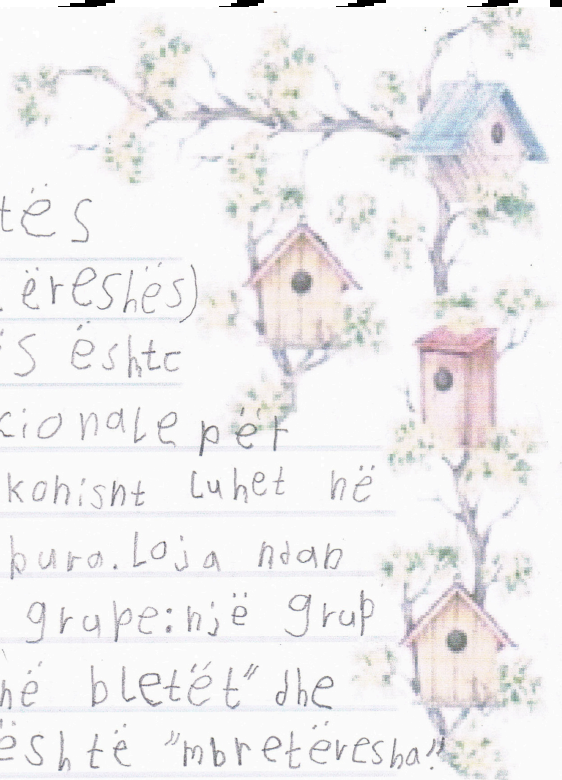 tës
ëreshës)
s është
cionale për
kohisht luhet në
bura. Loja ndan
grupe: një grup
në bletët" dhe
është "mbretëresha".